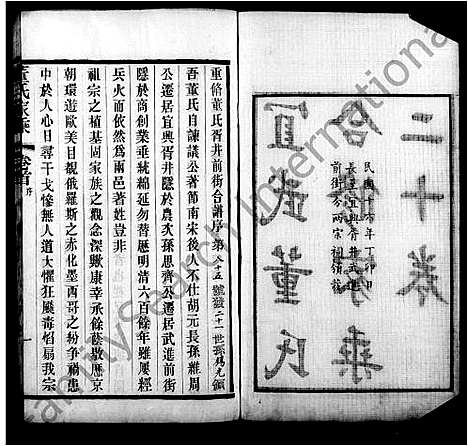 二十卷
宜武董氏
民國十六年丁卯
前街分兩宗祖
重脩董氏胥井前街合譜序
吾董氏自諫議公著節南宋後人不仕胡元長孫維周
公遷居宜興胥井隱於農次孫思齊公遷居武進前街
隱於商創業垂統綿延勿替歷明清六百餘年雖屢經
兵火而依然為兩邑著姓豈非
祖宗之植基固家族之觀念深歟康幸承餘蔭敭歷京
朝環遊歐美目覩俄羅斯之赤化墨西哥之紛爭禍患
中於人心日尋干戈慘無人道大懼狂飇毒焰扇我宗
董氏家乘
卷首
序
一
FamilySearch International